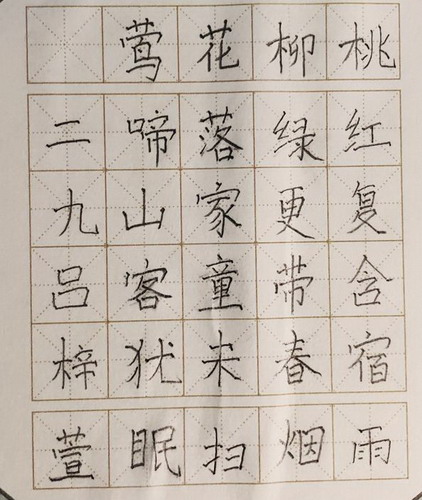 桃红复含宿雨
柳绿更带春烟
花落家童未扫
莺啼山客犹眠
二九吕梓萱